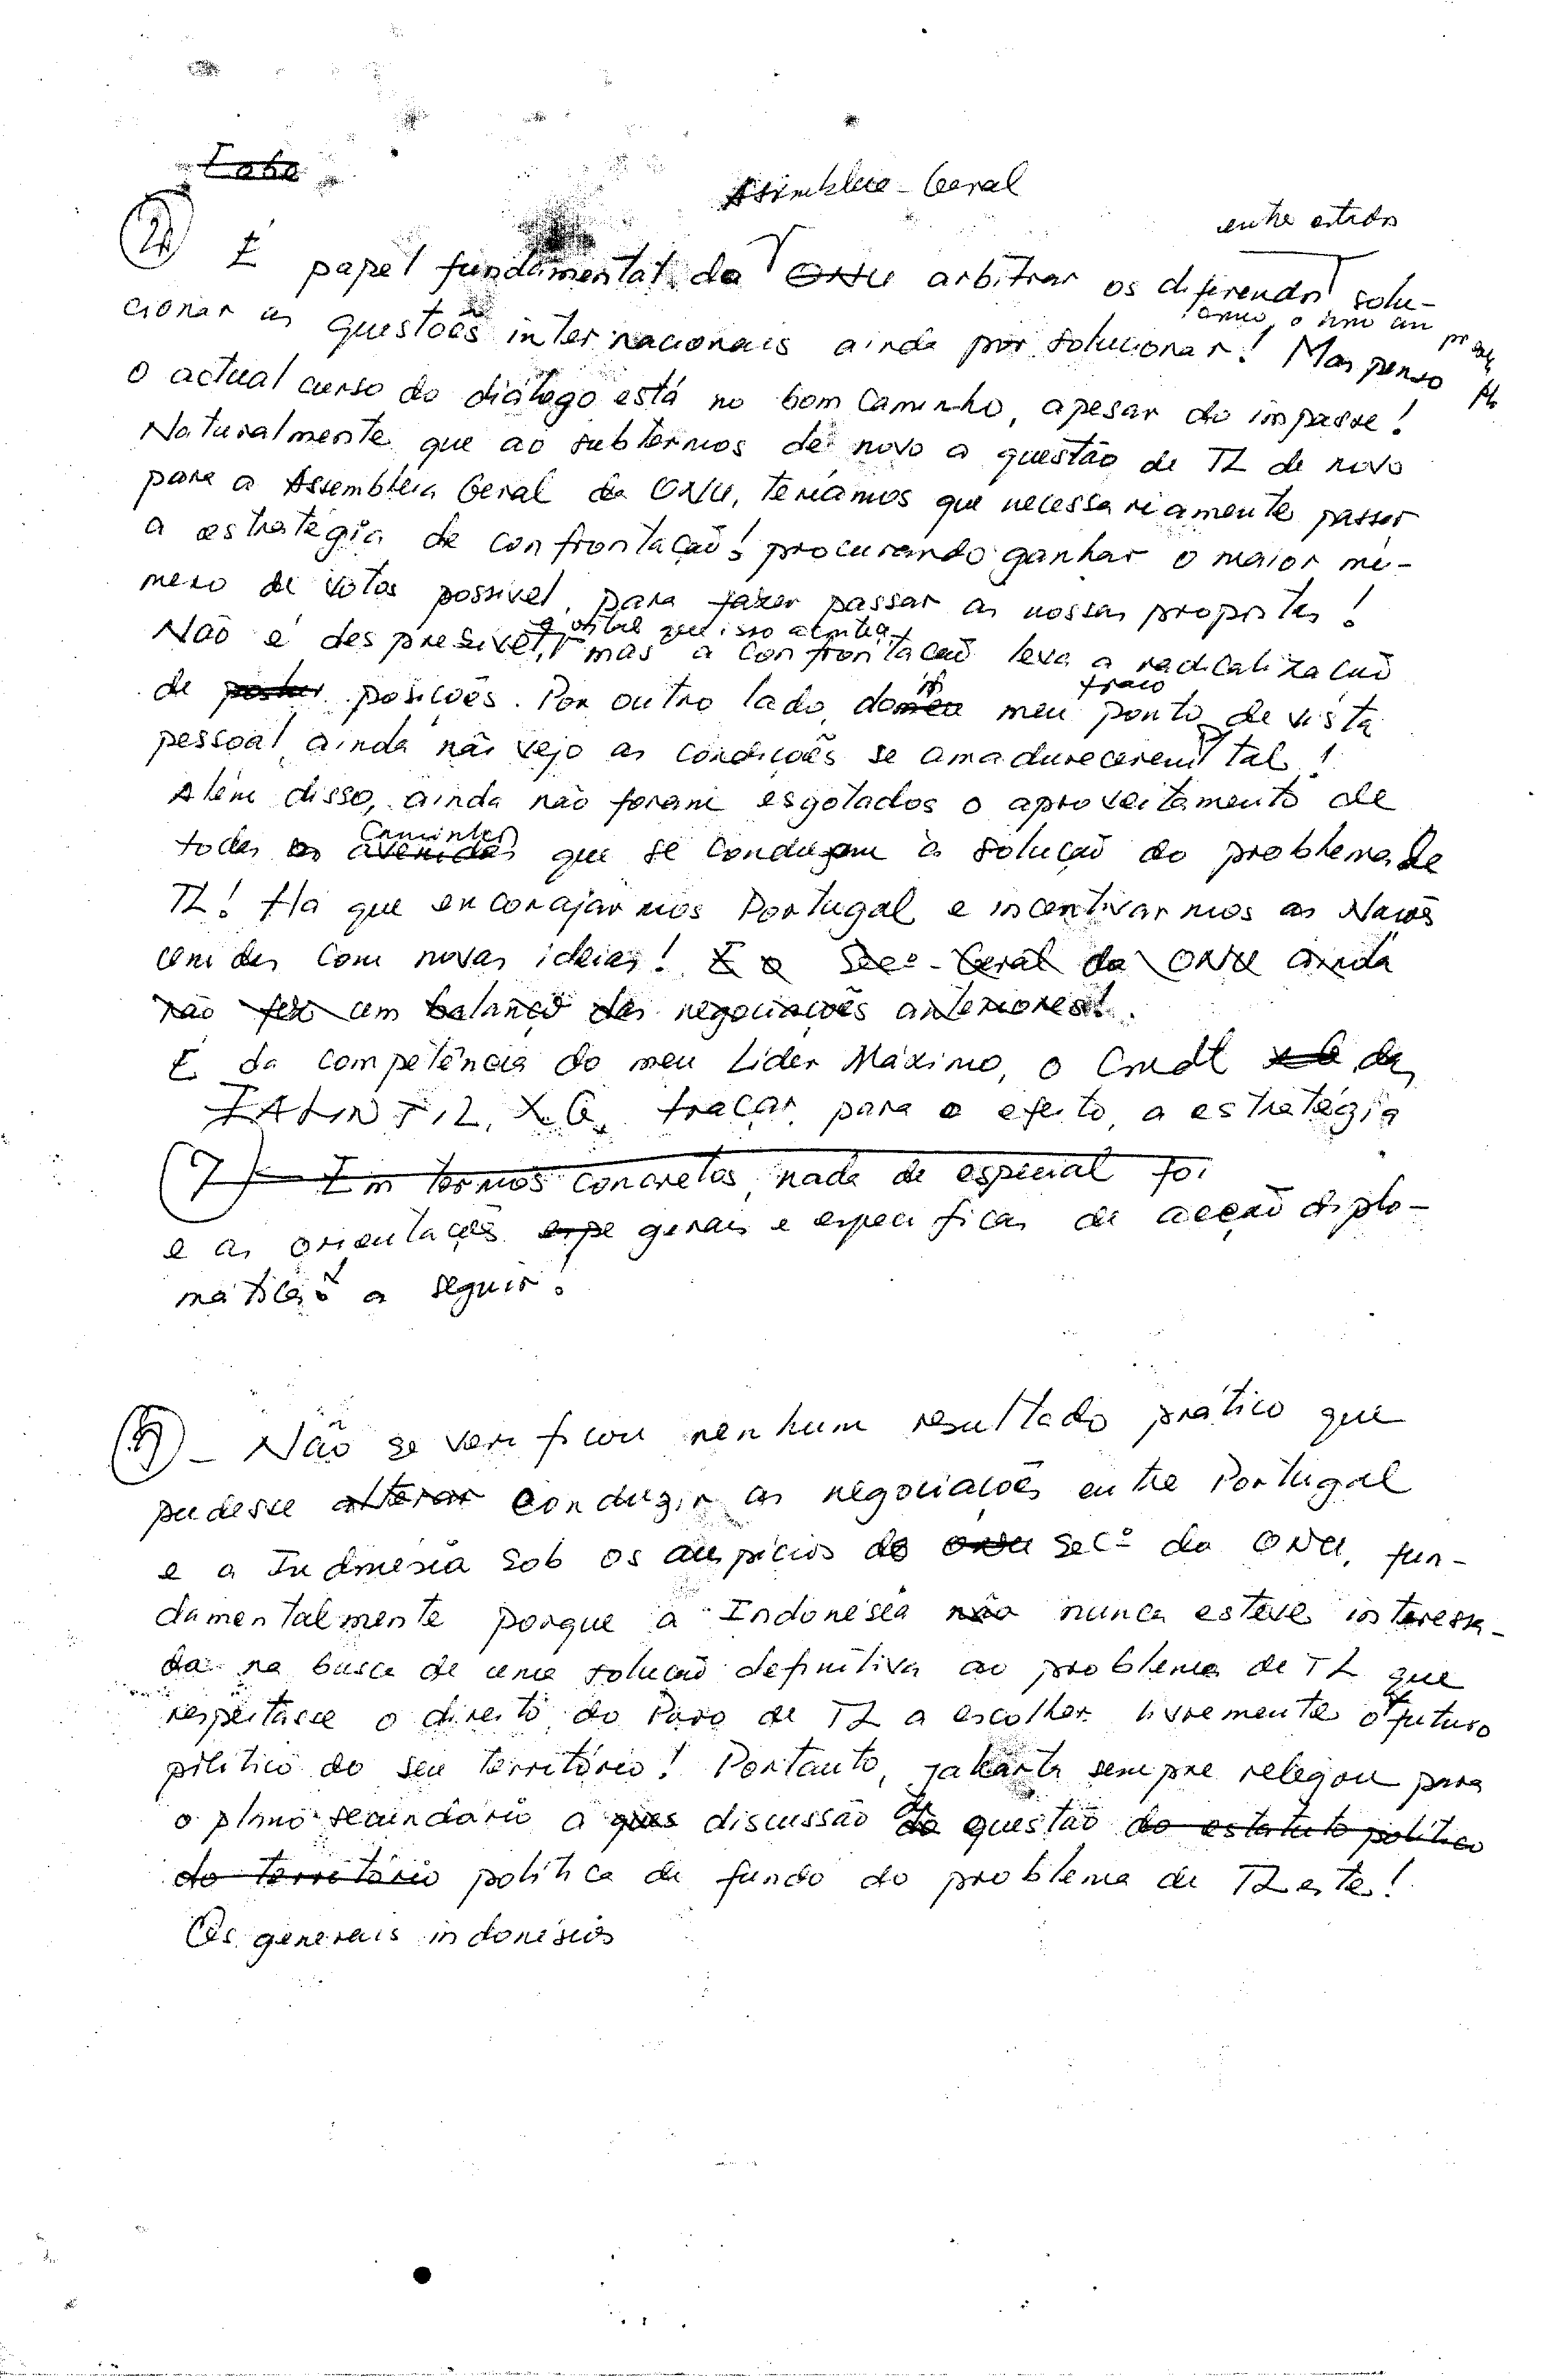 Assembleia-Geral
entre estados
É papel fundamental da ONU arbitrar os diferendos solu-
cionar as questões internacionais ainda por solucionar! Mas penso
o actual curso do diálogo está no bom caminho, apesar do impasse!
Naturalmente que ao subtermos de novo a questão de TL de novo
para a Assembleia Geral da ONU, teríamos que necessariamente passar
a estratégia de confrontação! procurando ganhar o maior nú-
mero de votos possivel, para fazer passar as nossas propostas!
que isso
Não é despresivel, mas a confrontação leva a radicalização
de posições. Por outro lado, do meu ponto de vista
pessoal, ainda não vejo as condições se amadurecerem tal!
Além disso, ainda não foram esgotados o aproveitamento de
Caminhos
todas as avenidas que se conduzam à solução do problema de
TL! Há que encorajarmos Portugal e incentivarmos as Nações
Unidas com novas ideias! E o Sec.º-Geral da ONU ainda
não fez um balanço das negociações anteriores!.
É da competência do meu Líder Máximo, o Cmdt XG das
FALINTIL, X.G. traçar, para o efeito, a estratégia
(7)- Em termos concretos, nada de especial foi
e as orientações espe gerais e especificas de acção diplo-
mática a seguir!
- Não se verificou nenhum resultado prático que
pudesse alterar conduzir as negociações entre Portugal
e a Indonésia sob os auspícios do ONU Secº da ONU, fun-
damentalmente porque a Indonésia não nunca esteve interessa-
da na busca de uma solução definitiva ao problema de TL que
respeitasse o direito do Povo de TL a escolher livremente o futuro
político do seu território! Portanto, Jakarta sempre relegou para
o plano secundário a ques discussão da questão do estatuto político
do território política de fundo do problema de TLeste!
Os generais indonésios